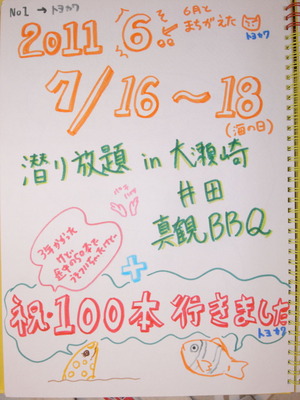 No1 → トヨカワ
2011 6
6月と
まちがえた
トヨカワ
7/16〜18
(海の日)
潜り放題 in 大瀬崎
井田
真観BBQ
3年かかった
けど、
+
祝・100本 行きました
トヨカワ